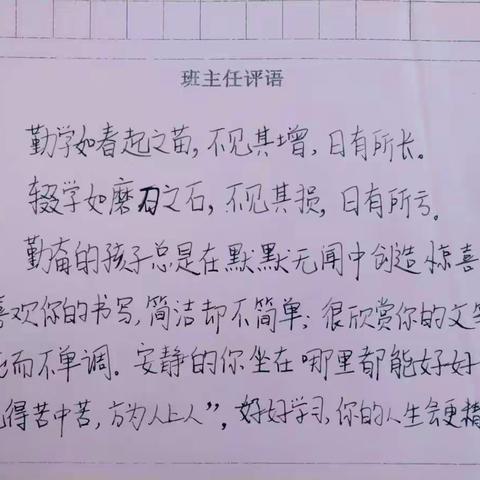 班主任评语
勤学如春起之苗，不见其增，日有所长。
辍学如磨刀之石，不见其损，日有所亏。
勤奋的孩子总是在默默无闻中创造惊喜
喜欢你的书写，简洁却不简单；很欣赏你的文笔
而不单调。安静的你坐在哪里都能好好
得苦中苦，方为人上人”，好好学习，你的人生会更精